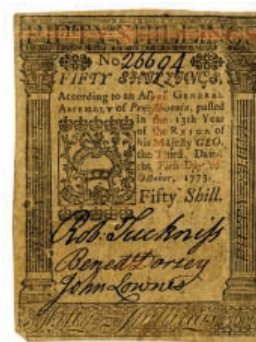 FIFTY SHILLINGS
No. 26694
FIFTY SHILLINGS,
According to an Act of GENERAL
ASSEMBLY of Pennsylvania, passed
in the 13th Year
of the REIGN of
his Majesty GEO.
the Third. Dated
the Day of
October, 1773.
Fifty Shill.
Rob. Tuckniss
Benedt Dorsey
John Lownes